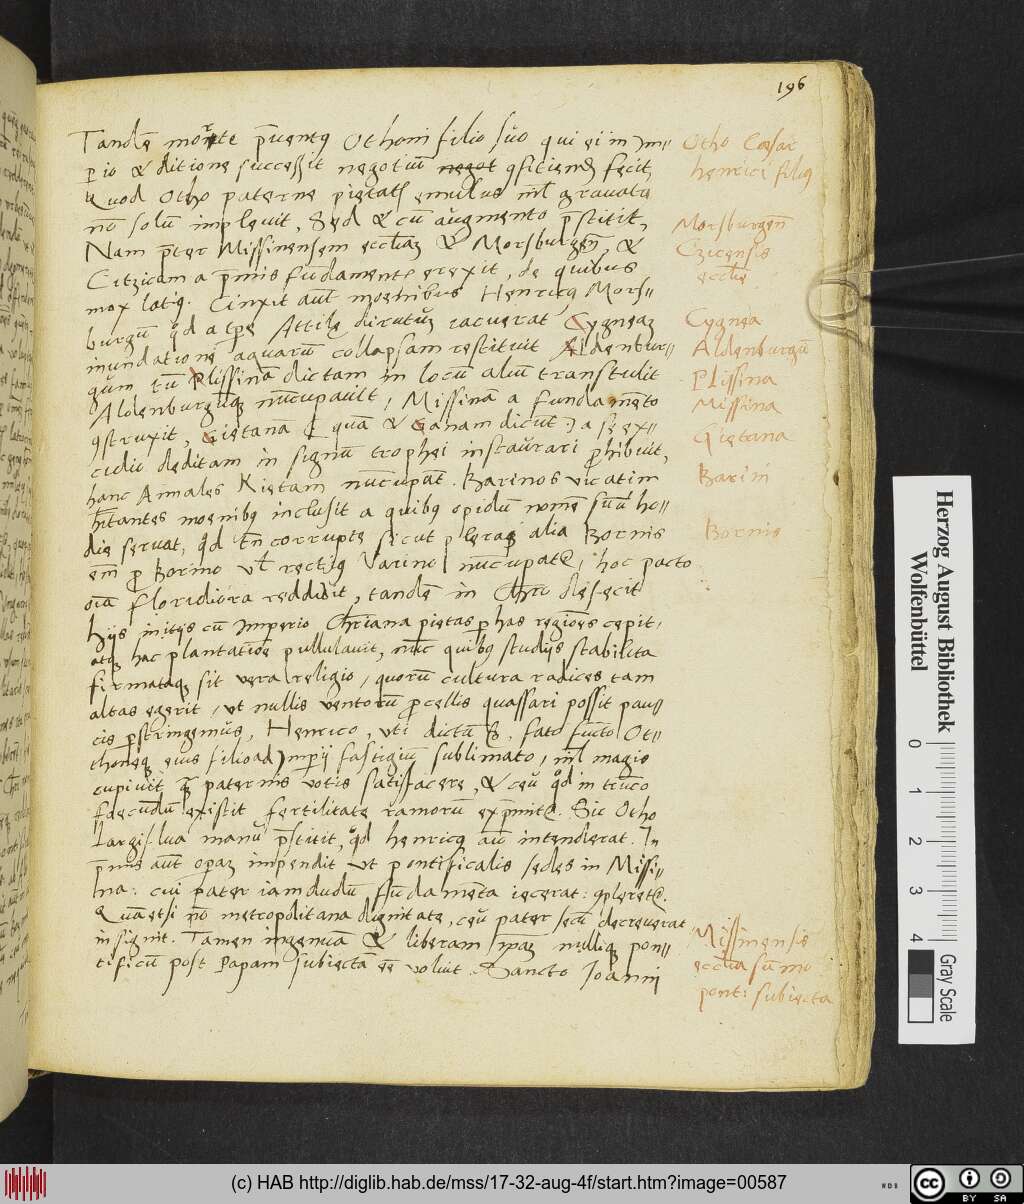 196
Tandē morte p̄uentꝯ Othoni filio suo qui ei in Im-
perio & ditione successit negotiū negot ꝯficiendū fecit,
Quod Otho paterne pietatis emulus nihil gravatꝯ
nō solū implevit, Sed & cū augmento p̄stitit,
Nam p̄ter Missinensem eccl̄iaꝫ & Morsburgeñ, &
Citzicam a p̄mis fundamentis erexit, de quibus
mox latiꝯ. Cinxit aut̄ moenibus Henricꝯ Mors-
burgū qd̄ a tp̄e Attile dirutuꝫ iacuerat Cygneaꝫ
inundatione aquarū collapsam restituit Aldenbur-
gum tū Plissinā dictam in locū aliū transtulit
Aldenburgūqꝫ nūcupavit, Missinā a fundamēto
ꝯstruxit, Gietana quā & Ganam dicūt a se ex-
cidio deditam in signū trophei instaurari prohibuit,
hanc Annales Kietam nūcupāt. Barinos vicatim
hītantes moenibꝯ inclusit a quibꝯ opidū nomē suū ho-
die servat, qd̄ tn̄ corrupte sicut pleraqꝫ alia Bornis
em̄ pro Borino vl̄ rectiꝯ Varino nūcupatr, hoc pacto
oīa floridiora reddidit, tandē in Chrō desecit
Hijs initijs cū Imperio Chr̄iana pietas p has regiones cepit,
atqꝫ hac plantatione pullulavit, nūc quibꝯ studijs stabilita
firmataqꝫ sit vera religio, quorū cultura radices tam
altas egerit, ut nullis ventorū procellis quassari possit pau-
cis perstringemus, Henrico, uti dictū est, fato functo Ot-
thoneqꝫ eius filio ad Imperij fastigiū sublimato, nihil magis
cupivit qꝫ paternis votis satisfacere, & ceu qd̄ in trūco
faecundū existit fertilitate ramorū exp̄mitr. Sic Otho
largiflua manu p̄stitit, qd̄ henricꝯ aū intenderat. In
p̄mis aut̄ operaꝫ impendit ut pontificalis sedes in Missi-
na: cui pater iamdudū fūdamēta iecerat: ꝯpleretr.
Quā etsi nō metropolitana dignitate, ceu pater secū decreverat
insignit. Tamen ingenuā & liberam ipsaꝫ nulliqꝫ pon-
tificū post Papam subiectā eē voluit. Sancto Ioanni
Otho Caesar
henrici filiꝯ
Morsburgeñ
Czicensis
eccl̄ie
Cygnea
Aldenburgū
Plissina
Missina
Gietana
Barini
Bornis
Missinensis
eccl̄ia sūmo
pont: subiecta
Herzog August Bibliothek
Wolfenbüttel
0 1 2 3 4
Gray Scale
(c) HAB http://diglib.hab.de/mss/17-32-aug-4f/start.htm?image=00587
WDB
cc BY SA